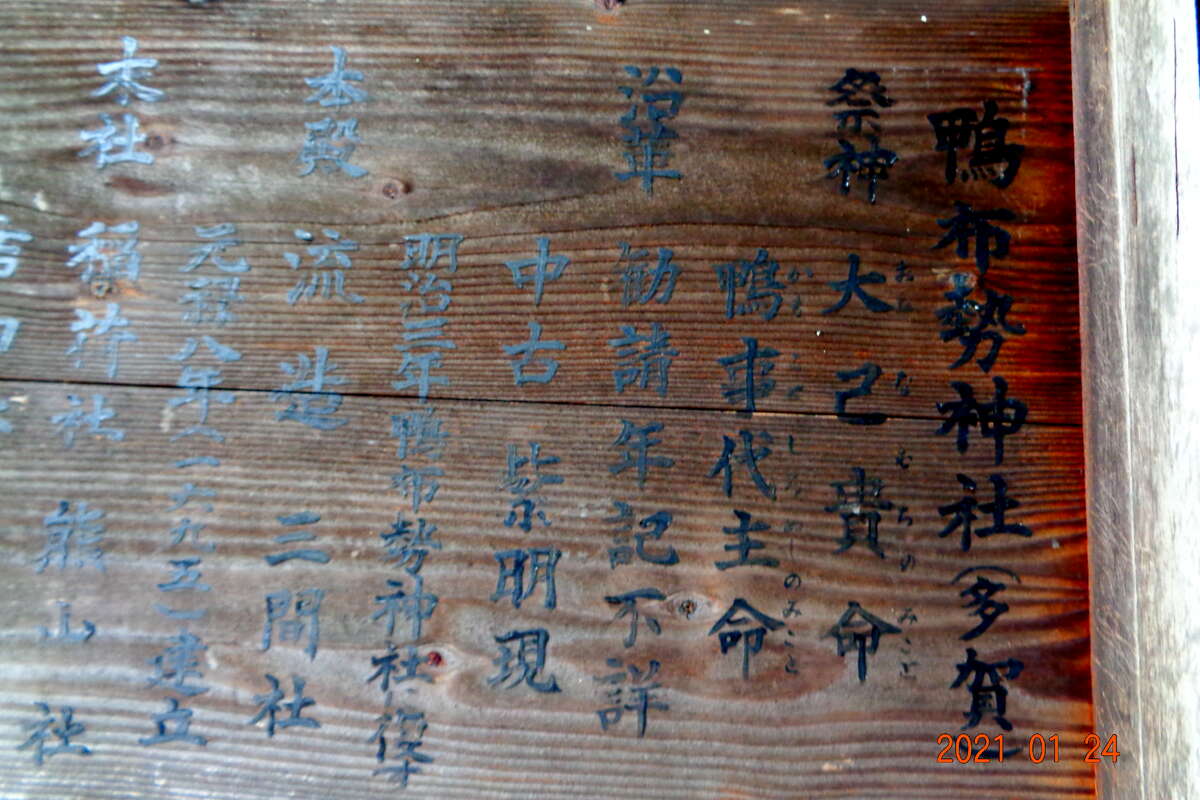 鴨布勢神社(多賀)
祭神 大己貴命
おおなむちのみこと
鴨事代主命
かもことしろぬしのみこと
沿革 勧請年記不詳
中古 紫明現
明治三年鴨布勢神社に復
本殿 流造 三間社
元禄八年(一六九五)建立
末社 稲荷社 熊山社
2021 01 24